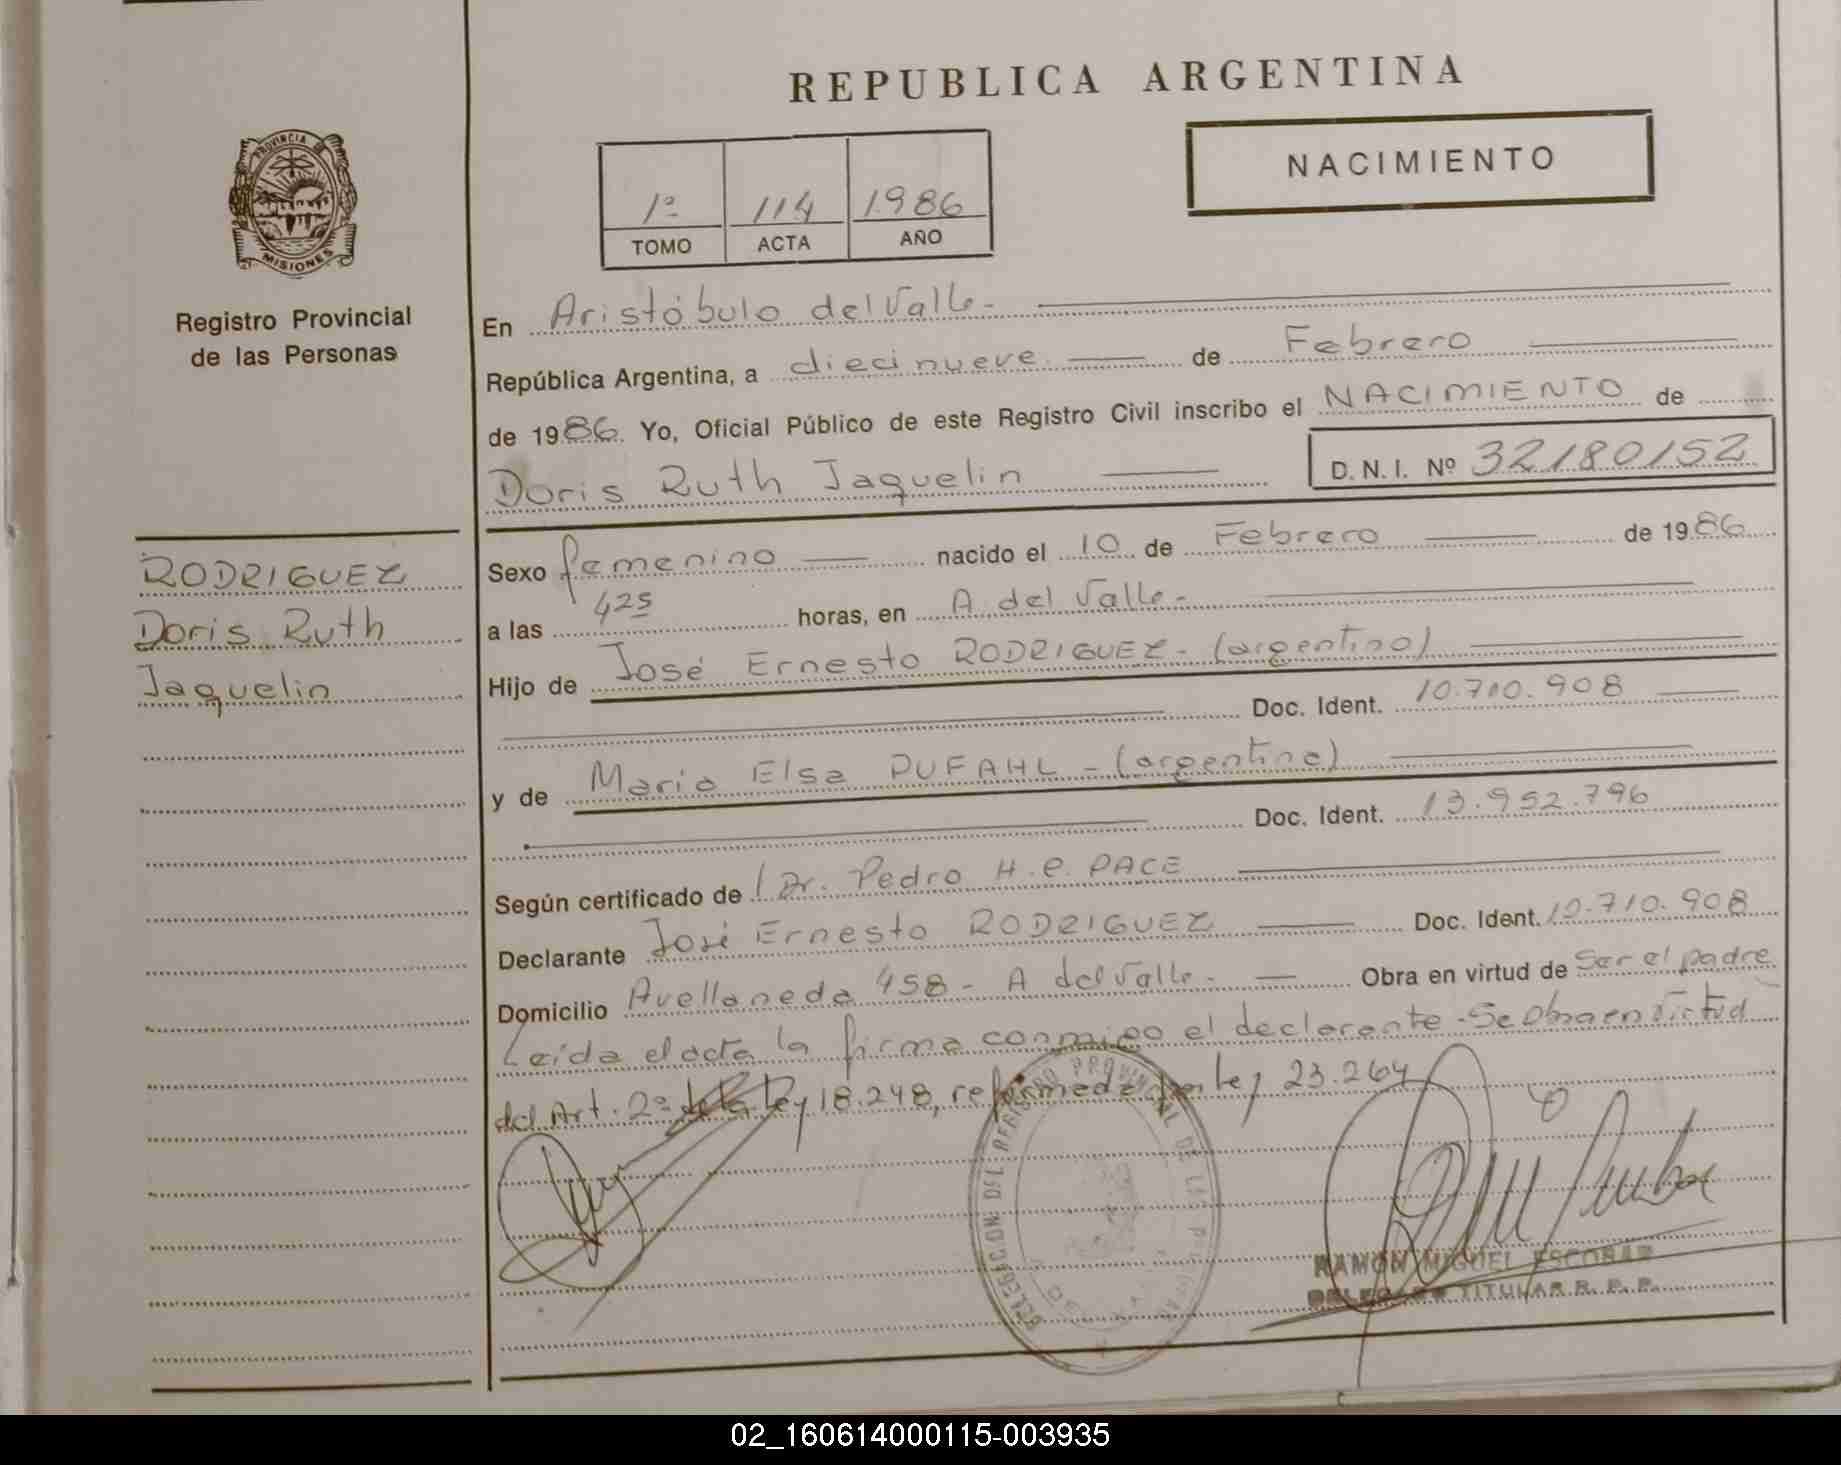 REPUBLICA ARGENTINA
NACIMIENTO
1º 114 1986
TOMO ACTA AÑO
PROVINCIA DE
MISIONES
Registro Provincial
de las Personas
RODRIGUEZ
Doris Ruth
Jaquelin
En Aristóbulo del Valle.-
República Argentina, a diecinueve de Febrero
de 1986. Yo, Oficial Público de este Registro Civil inscribo el NACIMIENTO de
Doris Ruth Jaquelin D.N.I. Nº 32180152
Sexo femenino nacido el 10 de Febrero de 1986
a las 425 horas, en A. del Valle.-
Hijo de José Ernesto RODRIGUEZ - (argentino)
Doc. Ident. 10.710.908
y de Maria Elsa PUFAHL - (argentina)
Doc. Ident. 13.952.796
Según certificado de Dr. Pedro H. PACE
Declarante José Ernesto RODRIGUEZ Doc. Ident. 10.710.908
Domicilio Avellaneda 458 - A del Valle.- Obra en virtud de Ser el padre
Leída el acta la firma conmigo el declarante - Se obra en virtud
del Art. 2º de la Ley 18.248, reformada por ley 23.264
DELEGACION DEL REGISTRO PROVINCIAL DE LAS
RAMON MIGUEL ESCOBAR
DELEGADO TITULAR R. P. P.
02_160614000115-003935